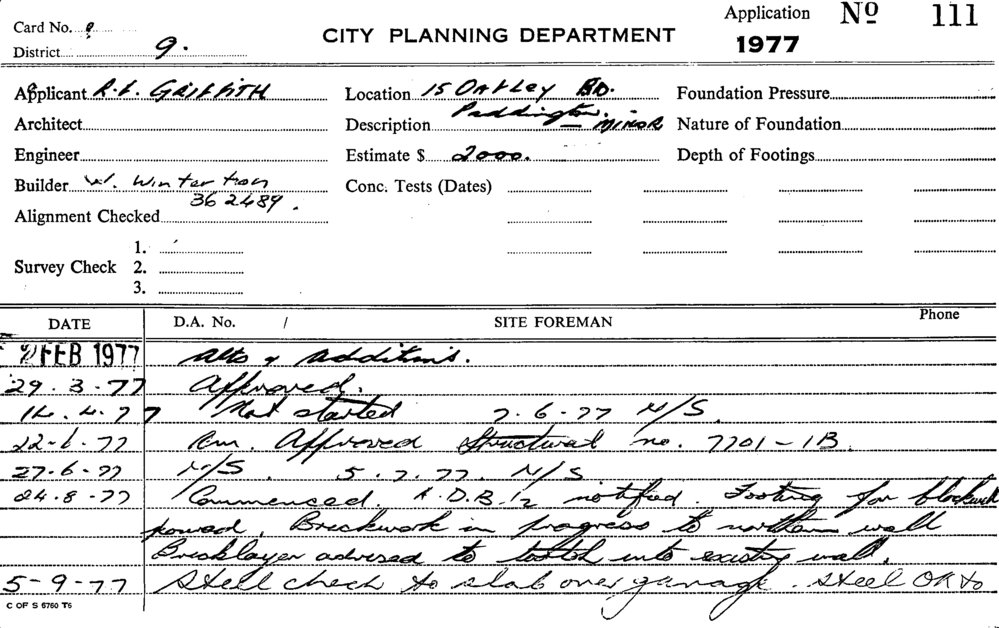 Card No. 9
Application No 111
District 9.
CITY PLANNING DEPARTMENT
1977
Applicant R.L. GRIFFITH
Location 15 Oatley RD.
Foundation Pressure
Paddington.
Architect
Description — MINOR
Nature of Foundation
Engineer
Estimate $ 2000.
Depth of Footings
Builder W. Winterton
Conc. Tests (Dates)
362489.
Alignment Checked
1.
Survey Check 2.
3.
DATE D.A. No. / SITE FOREMAN Phone
2 FEB 1977 Alts & additions.
29.3.77 Approved.
14.4.77 Not started 7-6-77 N/S.
22-6.77 Approved Structural no. 7701-1B
27.6.77 N/S. 5.7.77. N/S
24.8.77 Commenced. notified. Footing for blockwork
poured. Brickwork in progress to northern wall
Bricklayer advised to tooth into existing wall.
5-9-77 Steel check to slab over garage. Steel OK to
C OF S 6760 T6